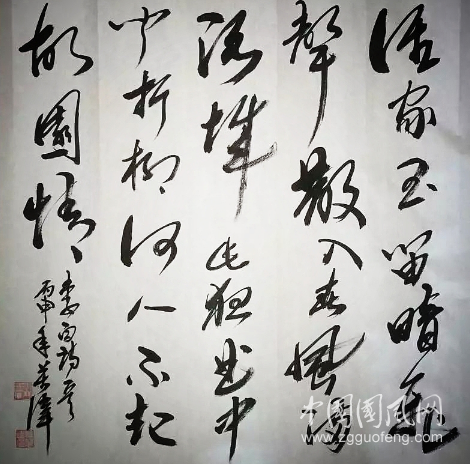 谁家玉笛暗飛
聲散入春風滿
洛城此夜曲中
闻折柳何人不起
故園情
李白詩
丙申年
中國國風网
www.zgguofeng.com